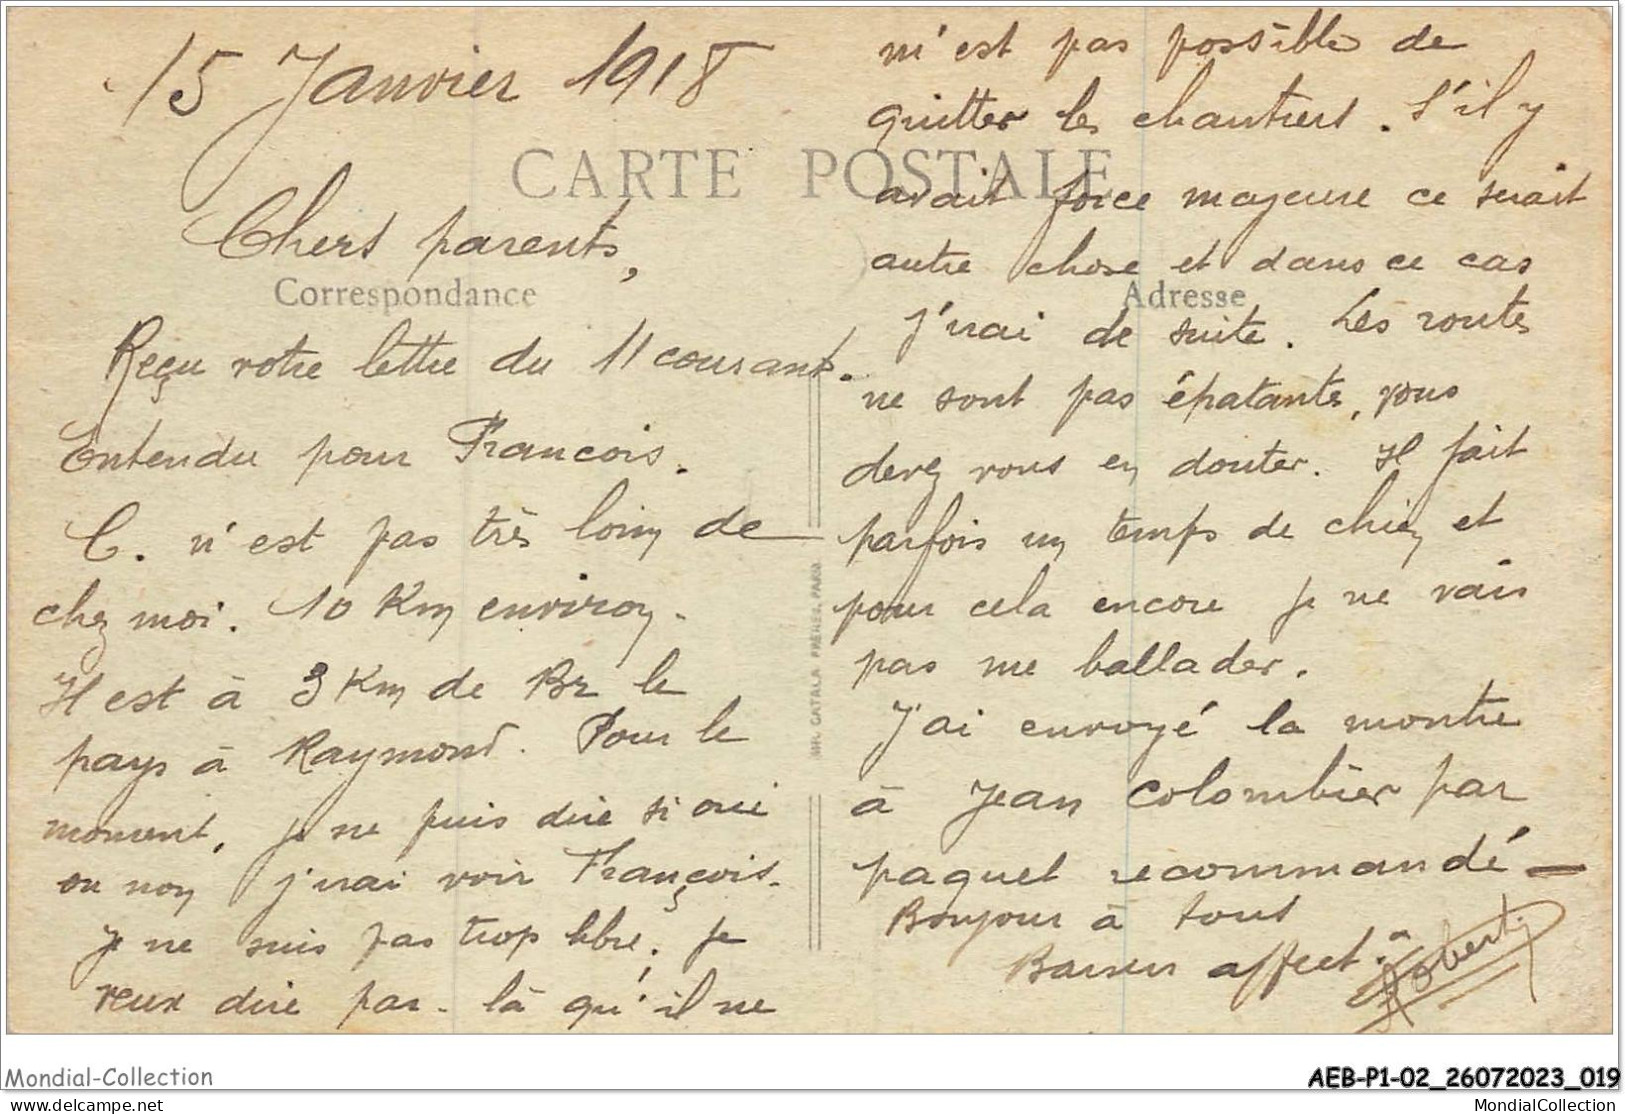 15 Janvier 1918
CARTE POSTALE
Chers parents,
Correspondance
Reçu votre lettre du 11 courant.
Entendu pour Francois.
C. n'est pas très loin de
chez moi. 10 Km environ.
Il est à 3 Km de Br le
pays à Raymond. Pour le
moment, je ne puis dire si oui
ou non j'irai voir François.
Je ne suis pas trop libre. Je
veux dire par-là qu'il ne
m'est pas possible de
quitter les chantiers. S'il y
avait force majeure ce serait
autre chose et dans ce cas
Adresse
j'irai de suite. Les routes
ne sont pas épatantes, vous
devez vous en douter. Il fait
parfois un temps de chien et
pour cela encore je ne vais
pas me ballader.
J'ai envoyé la montre
à Jean Colombier par
paquet recommandé —
Bonjour à tous
Baisers affect.
Robert
IMP. CATALA FRÈRES, PARIS
Mondial-Collection
AEB-P1-02_26072023_019
delcampe.net
MondialCollection